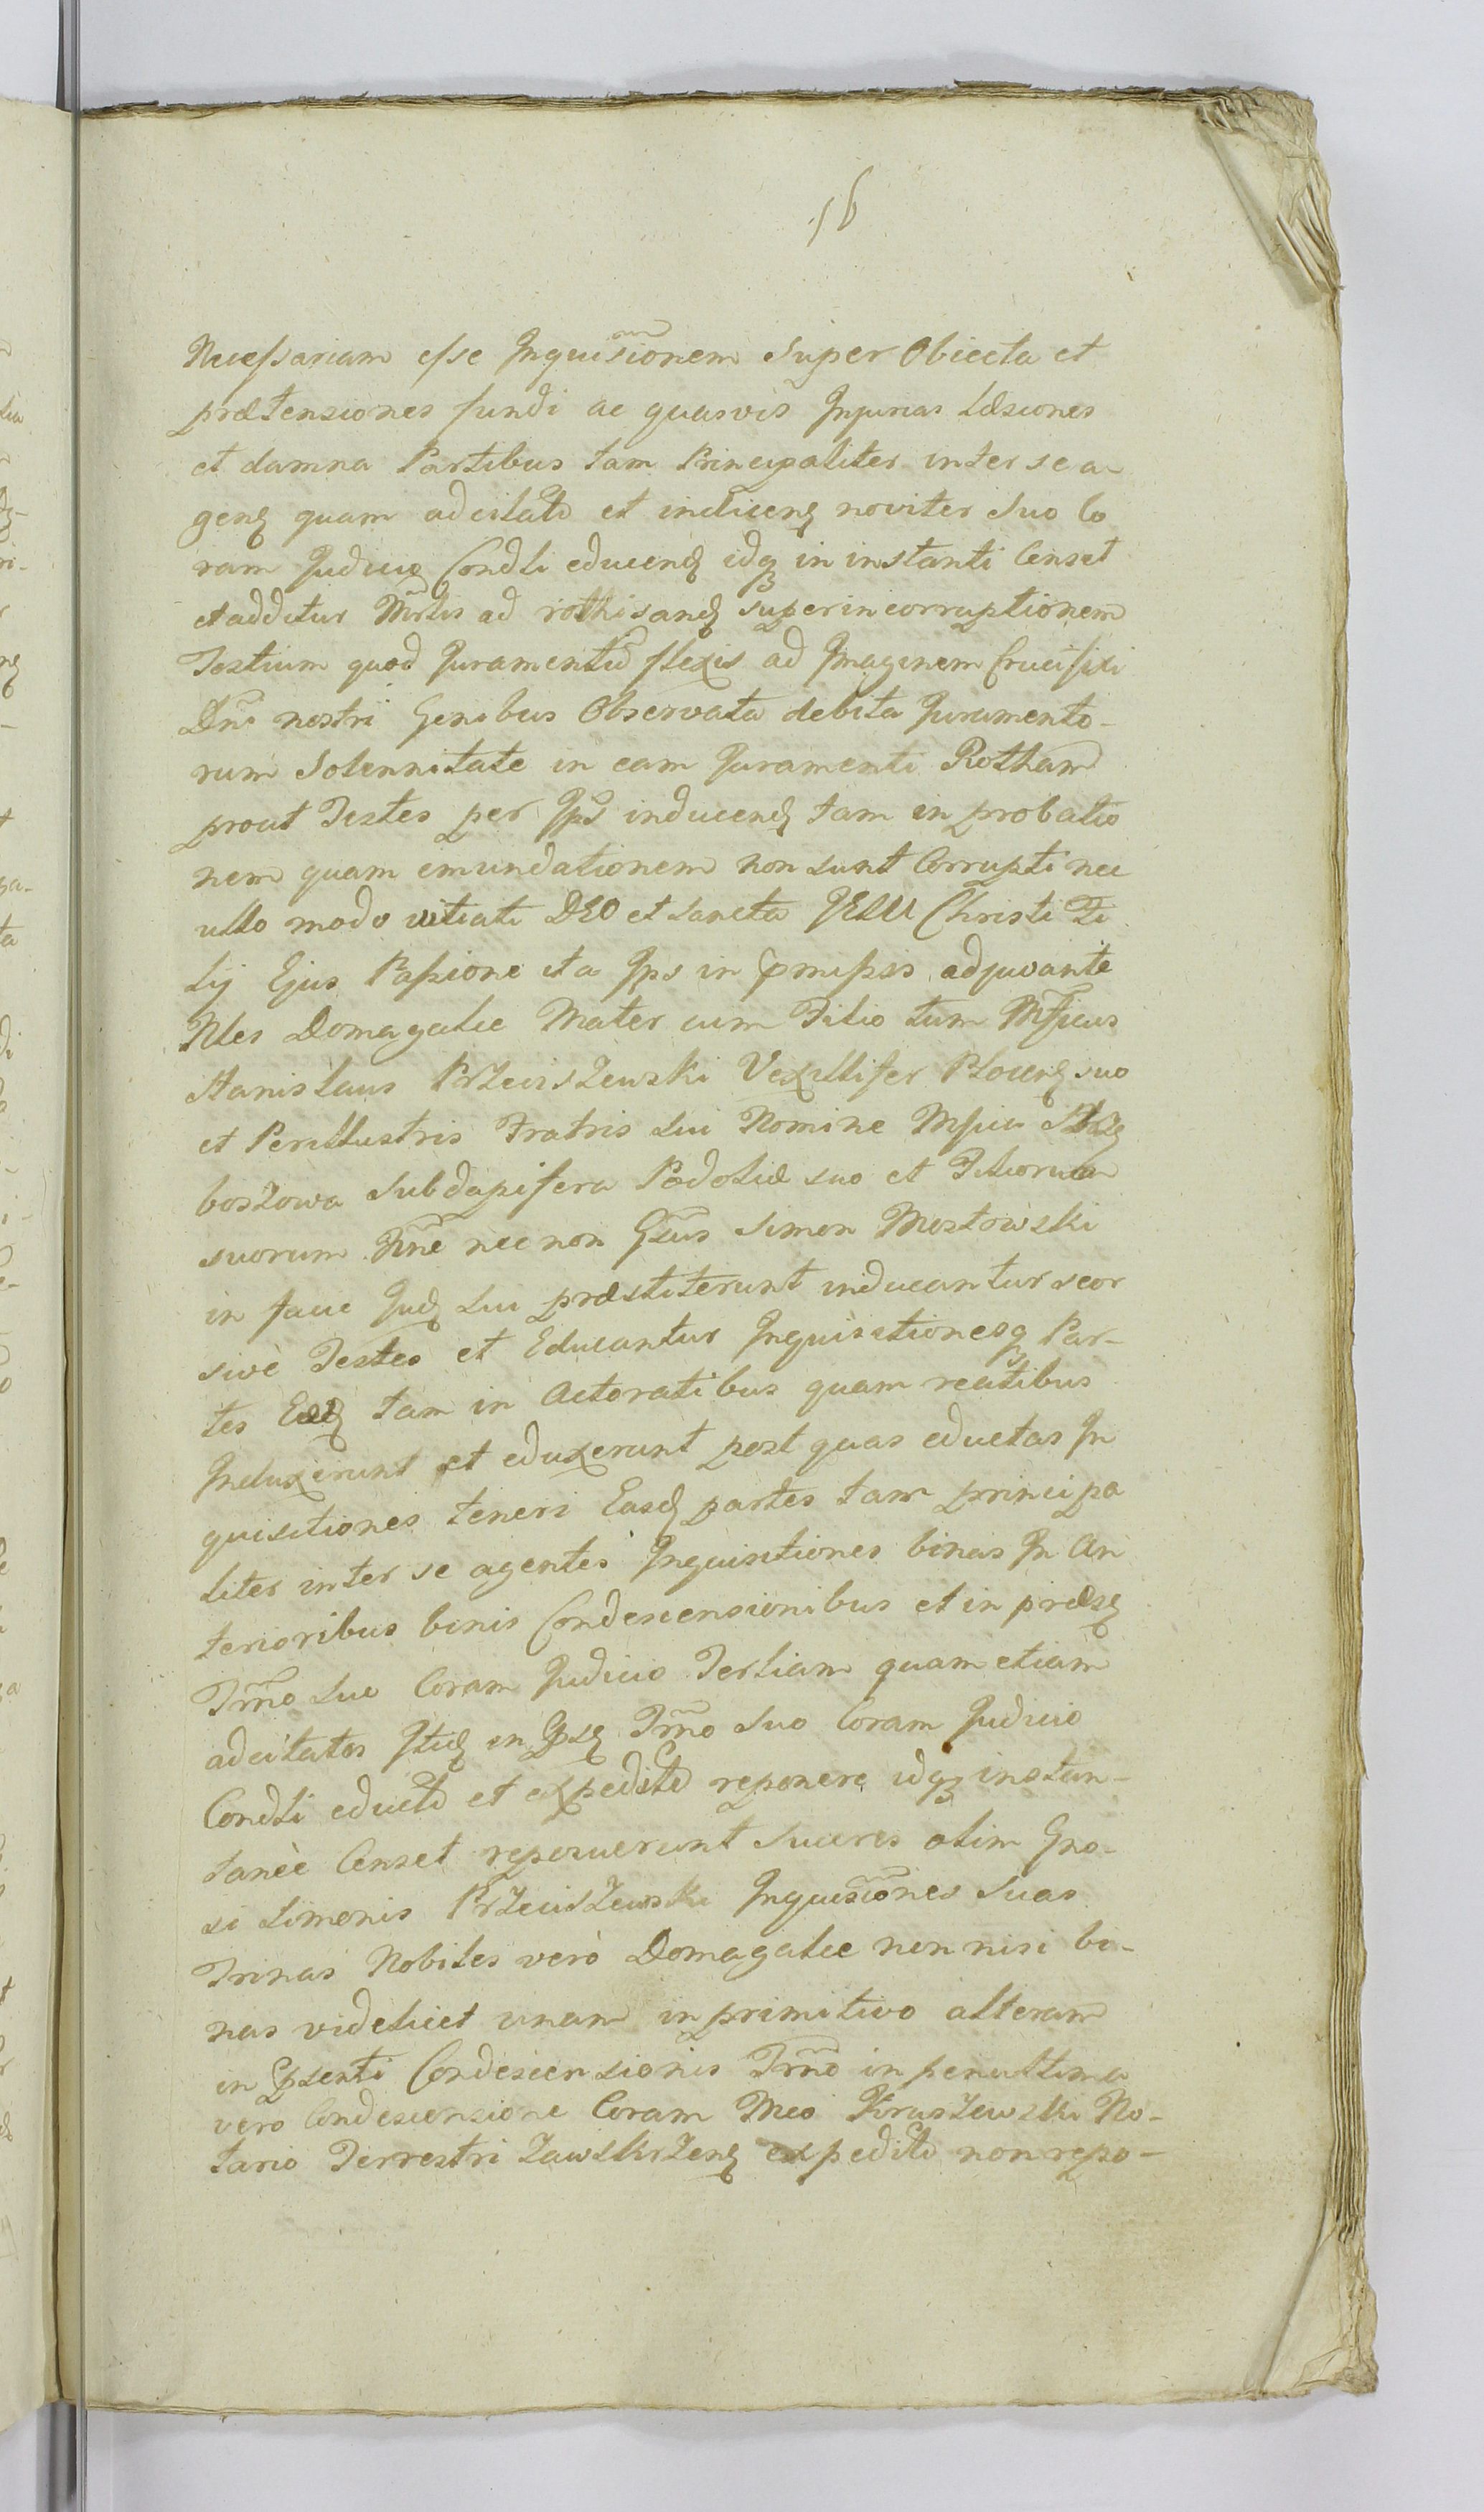 16
Necessariam esse Inquis̃ionem Super Obiecta et
prætensiones fundi ac quasvis Injurias Læsiones
et damna Partibus tam Principaliter inter se a
genȩ quam adcitato et indicenȩ noviter Suo Co
ram Judicio Condli educenȩ idqȝ in instanti Censet
et additur Mrlis ad rothisanȩ super incorruptionem
Testium quod Juramentũ flexis ad Imaginem Crucifixi
Dni nostri Genibus Observata debita Juramento-
rum Solennitate in eam Juramenti Rotham
prout Testes per Ips inducenȩ tam in probatio
nem quam emundationem non sunt Corrupti nec
ullo modo vitiati DEO et Sancta JESU Christi Fi
lij Ejus Passione ita Ips in pmissis adjuvante
Nles Domagalie Mater cum Filio tum Mficus
Stanislaus Przeciszewski Vexillifer Plocenȩ suo
et Perillustris Fratris Sui Nomine Mfica
boszowa Subdapifera Podoliæ suo et Filiorum
suorum Nne nec non Gsus Simon Mostowski
in facie Judȩ Sui præstiterunt inducantur seor
sivè Testes et Educantur Inquisitionesqȝ Par-
tes Eædȩ tam in Actoratibus quam reatibus
Induxerunt et eduxerunt post quas eductas In
quisitiones teneri Easdȩ partes tam principa
liter inter se agentes Inquisitiones binas In An
terioribus binis Condescensionibus et in præsȩ
Trm̃o Suo Coram Judicio Tertiam quam etiam
adcitatos Itidȩ in Psȩ Trm̃o Suo Coram Judicio
Condli educto et expedito reponere idqȝ instan-
tanèe Censet reposuerunt Succres olim Gno-
si Simonis Przeciszewski Inquisiones Suas
Trinas Nobiles verò Domagalie non nisi bi-
nas videlicet unam in primitivo alteram
in Psenti Condescensionis Trm̃o in penultima
vero Condescensione Coram Meo Kruszewski No-
tario Terrestri Zawskrzenȩ expedito non repo-